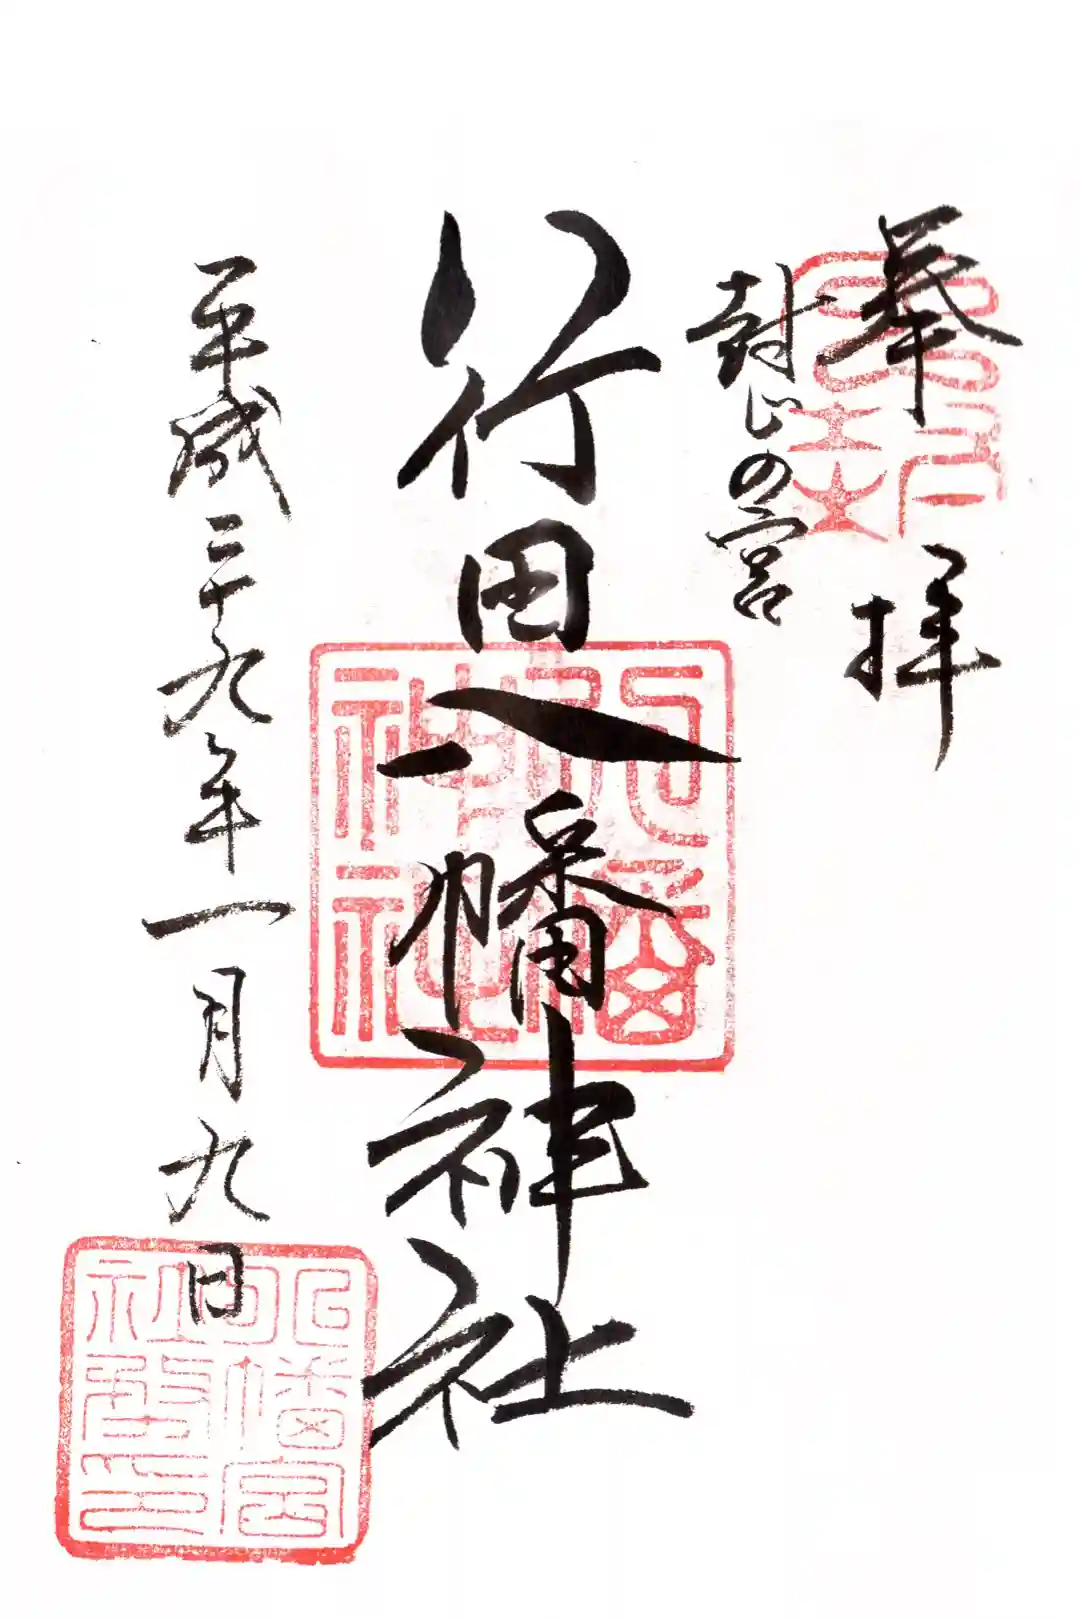 奉拝
封じの宮
行田八幡神社
平成二十九年一月九日
八幡神社
八幡宮社務印